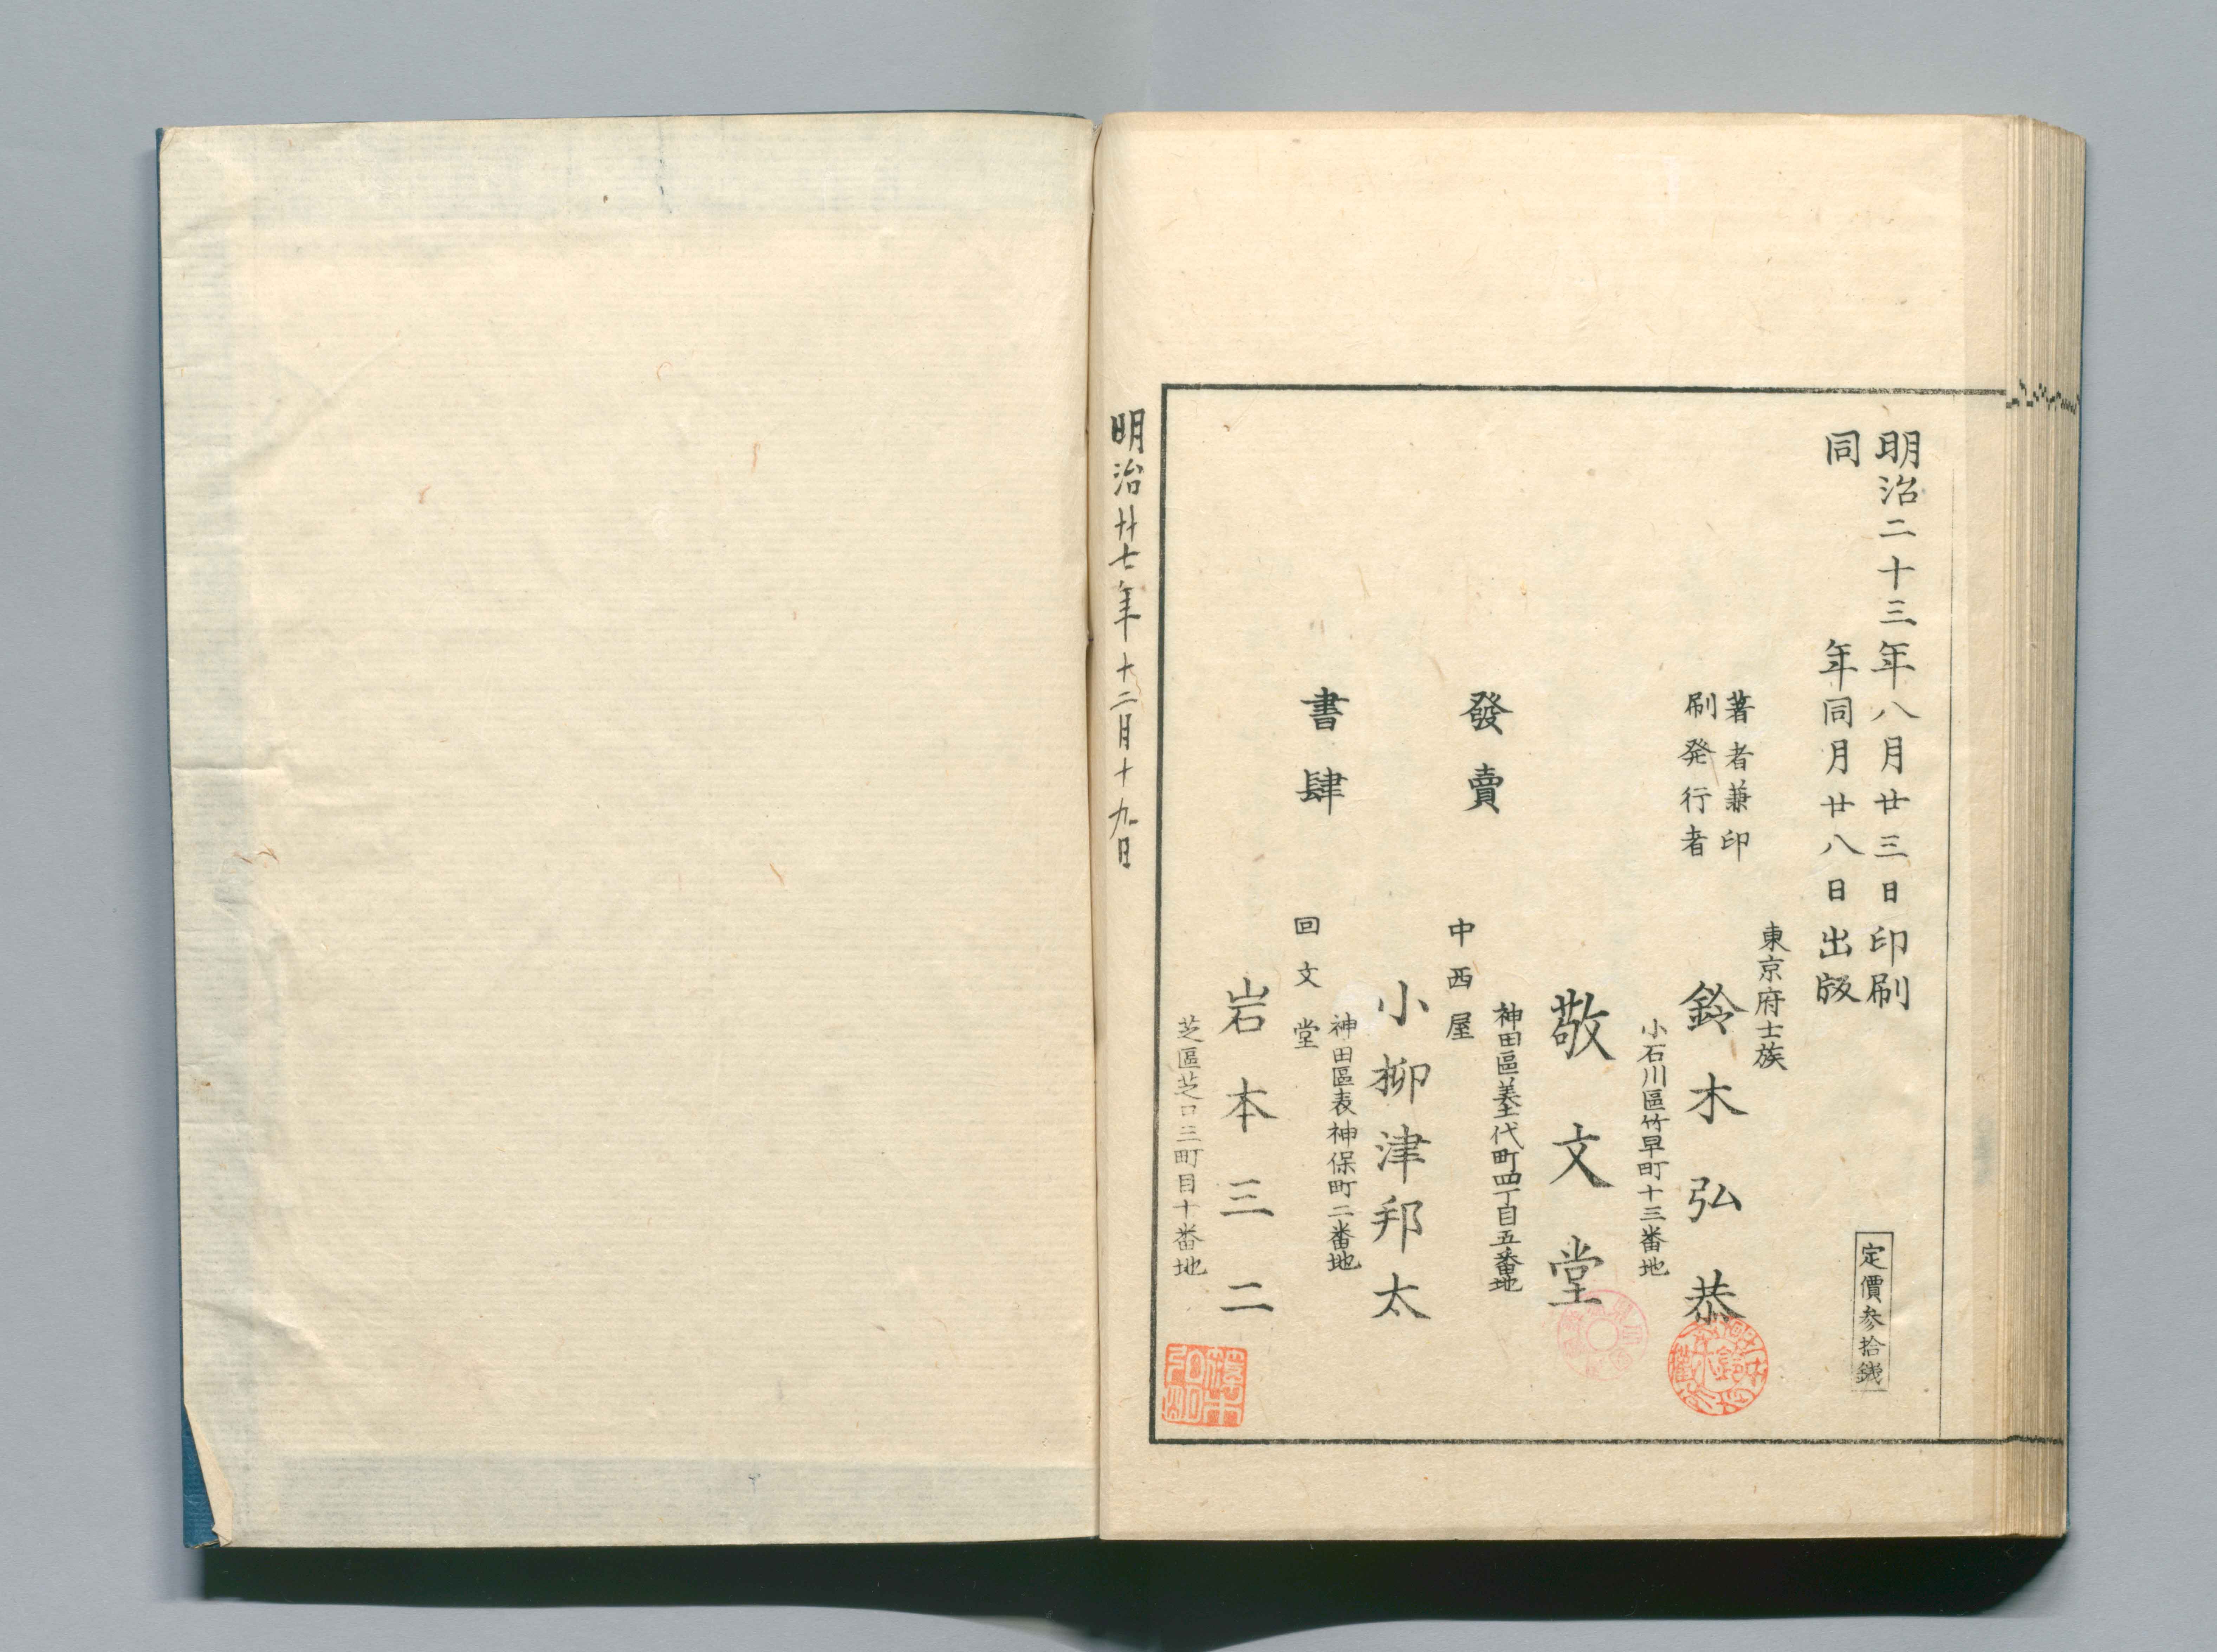 明治二十三年八月廿三日印刷
同年同月廿八日出版
定價參拾錢
東京府士族
著者兼印
刷発行者
鈴木弘恭
小石川區竹早町十三番地
敬文堂
神田區美土代町四丁目五番地
發賣
中西屋
小柳津邦太
神田區表神保町二番地
書肆
回文堂
岩本三二
芝區芝口三町目十番地
明治廿七年十二月十九日